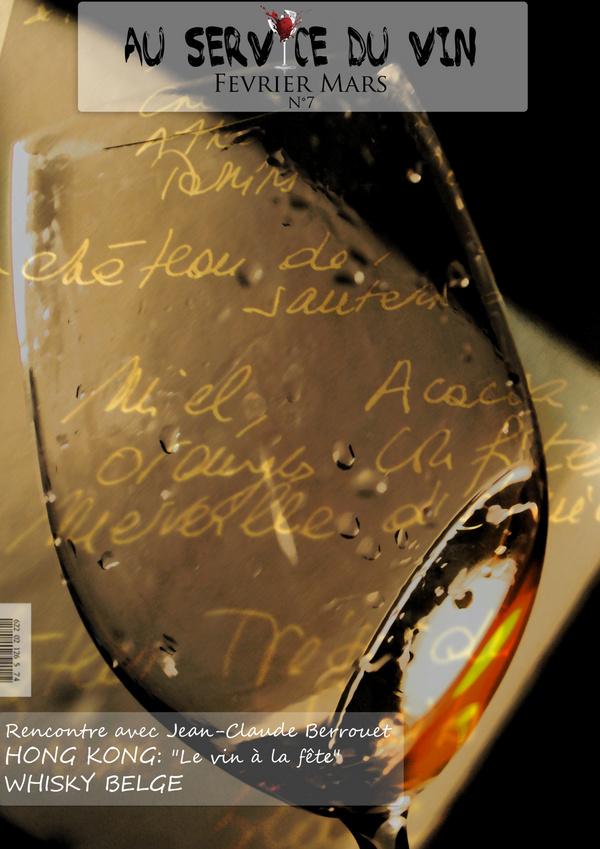 AU SERVICE DU VIN
FEVRIER MARS
N°7
château de
sautern
Miel, Acacia.
oranges confites
Merveille d'
Très
622 02 126 5 74
Rencontre avec Jean-Claude Berrouet
HONG KONG: "Le vin à la fête"
WHISKY BELGE